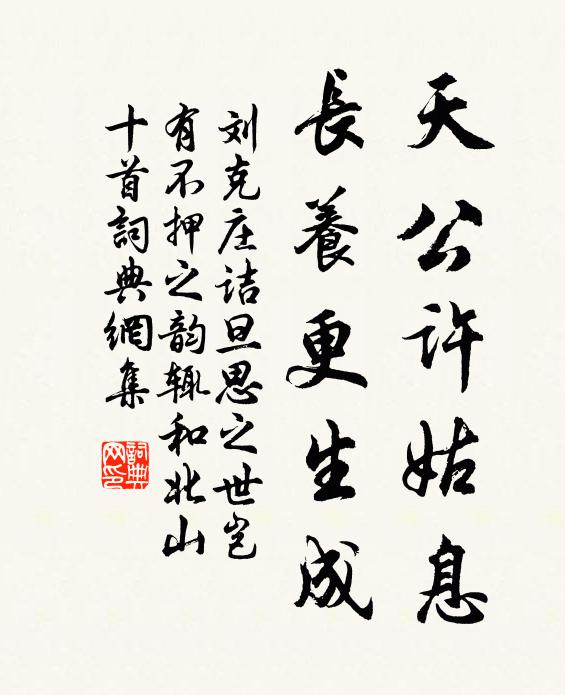 天公许姑息
長養更生成
刘克庄诘旦思之世岂
有不押之韵辄和北山
十首詞典網集
詞典
网印